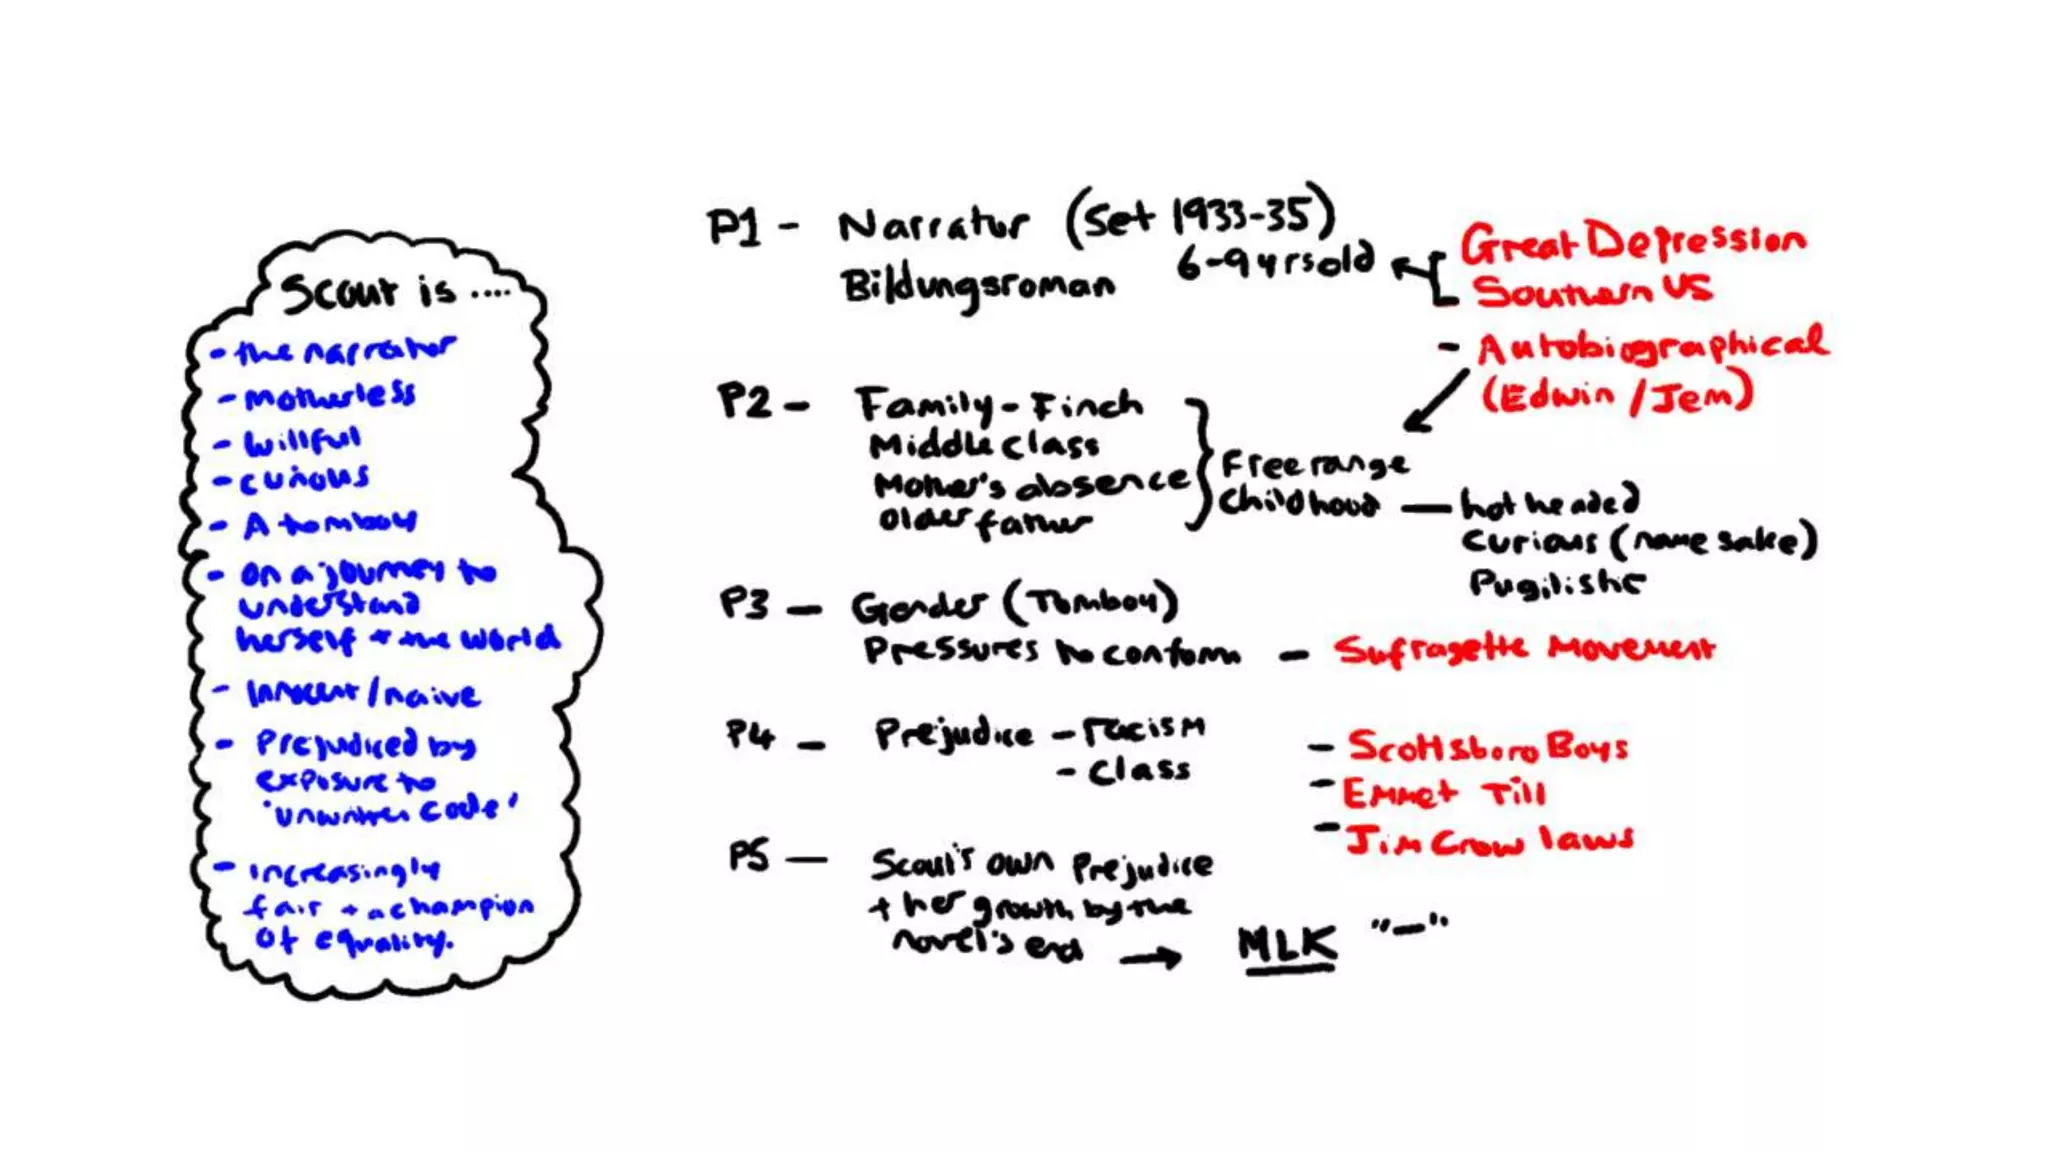 Scout is ....
- the narrator
- motherless
- willful
- curious
- A tomboy
- on a journey to
understand
herself + the world
- Innocent / naive
- Prejudiced by
exposure to
'unwritten code'
- increasingly
fair + a champion
of equality.
P1 - Narrator (Set 1933-35)
Bildungsroman 6-9 yrs old
Great Depression
Southern US
- Autobiographical
(Edwin / Jem)
P2 - Family - Finch
Middle class
Mother's absence
older father
Free range
Childhood — hot headed
Curious (name sake)
Pugilistic
P3 - Gender (Tomboy)
Pressures to conform - Suffragette Movement
P4 - Prejudice - racism
- class
- Scottsboro Boys
- Emmet Till
- Jim Crow laws
P5 - Scout's own Prejudice
+ her growth by the
novel's end → MLK "—"